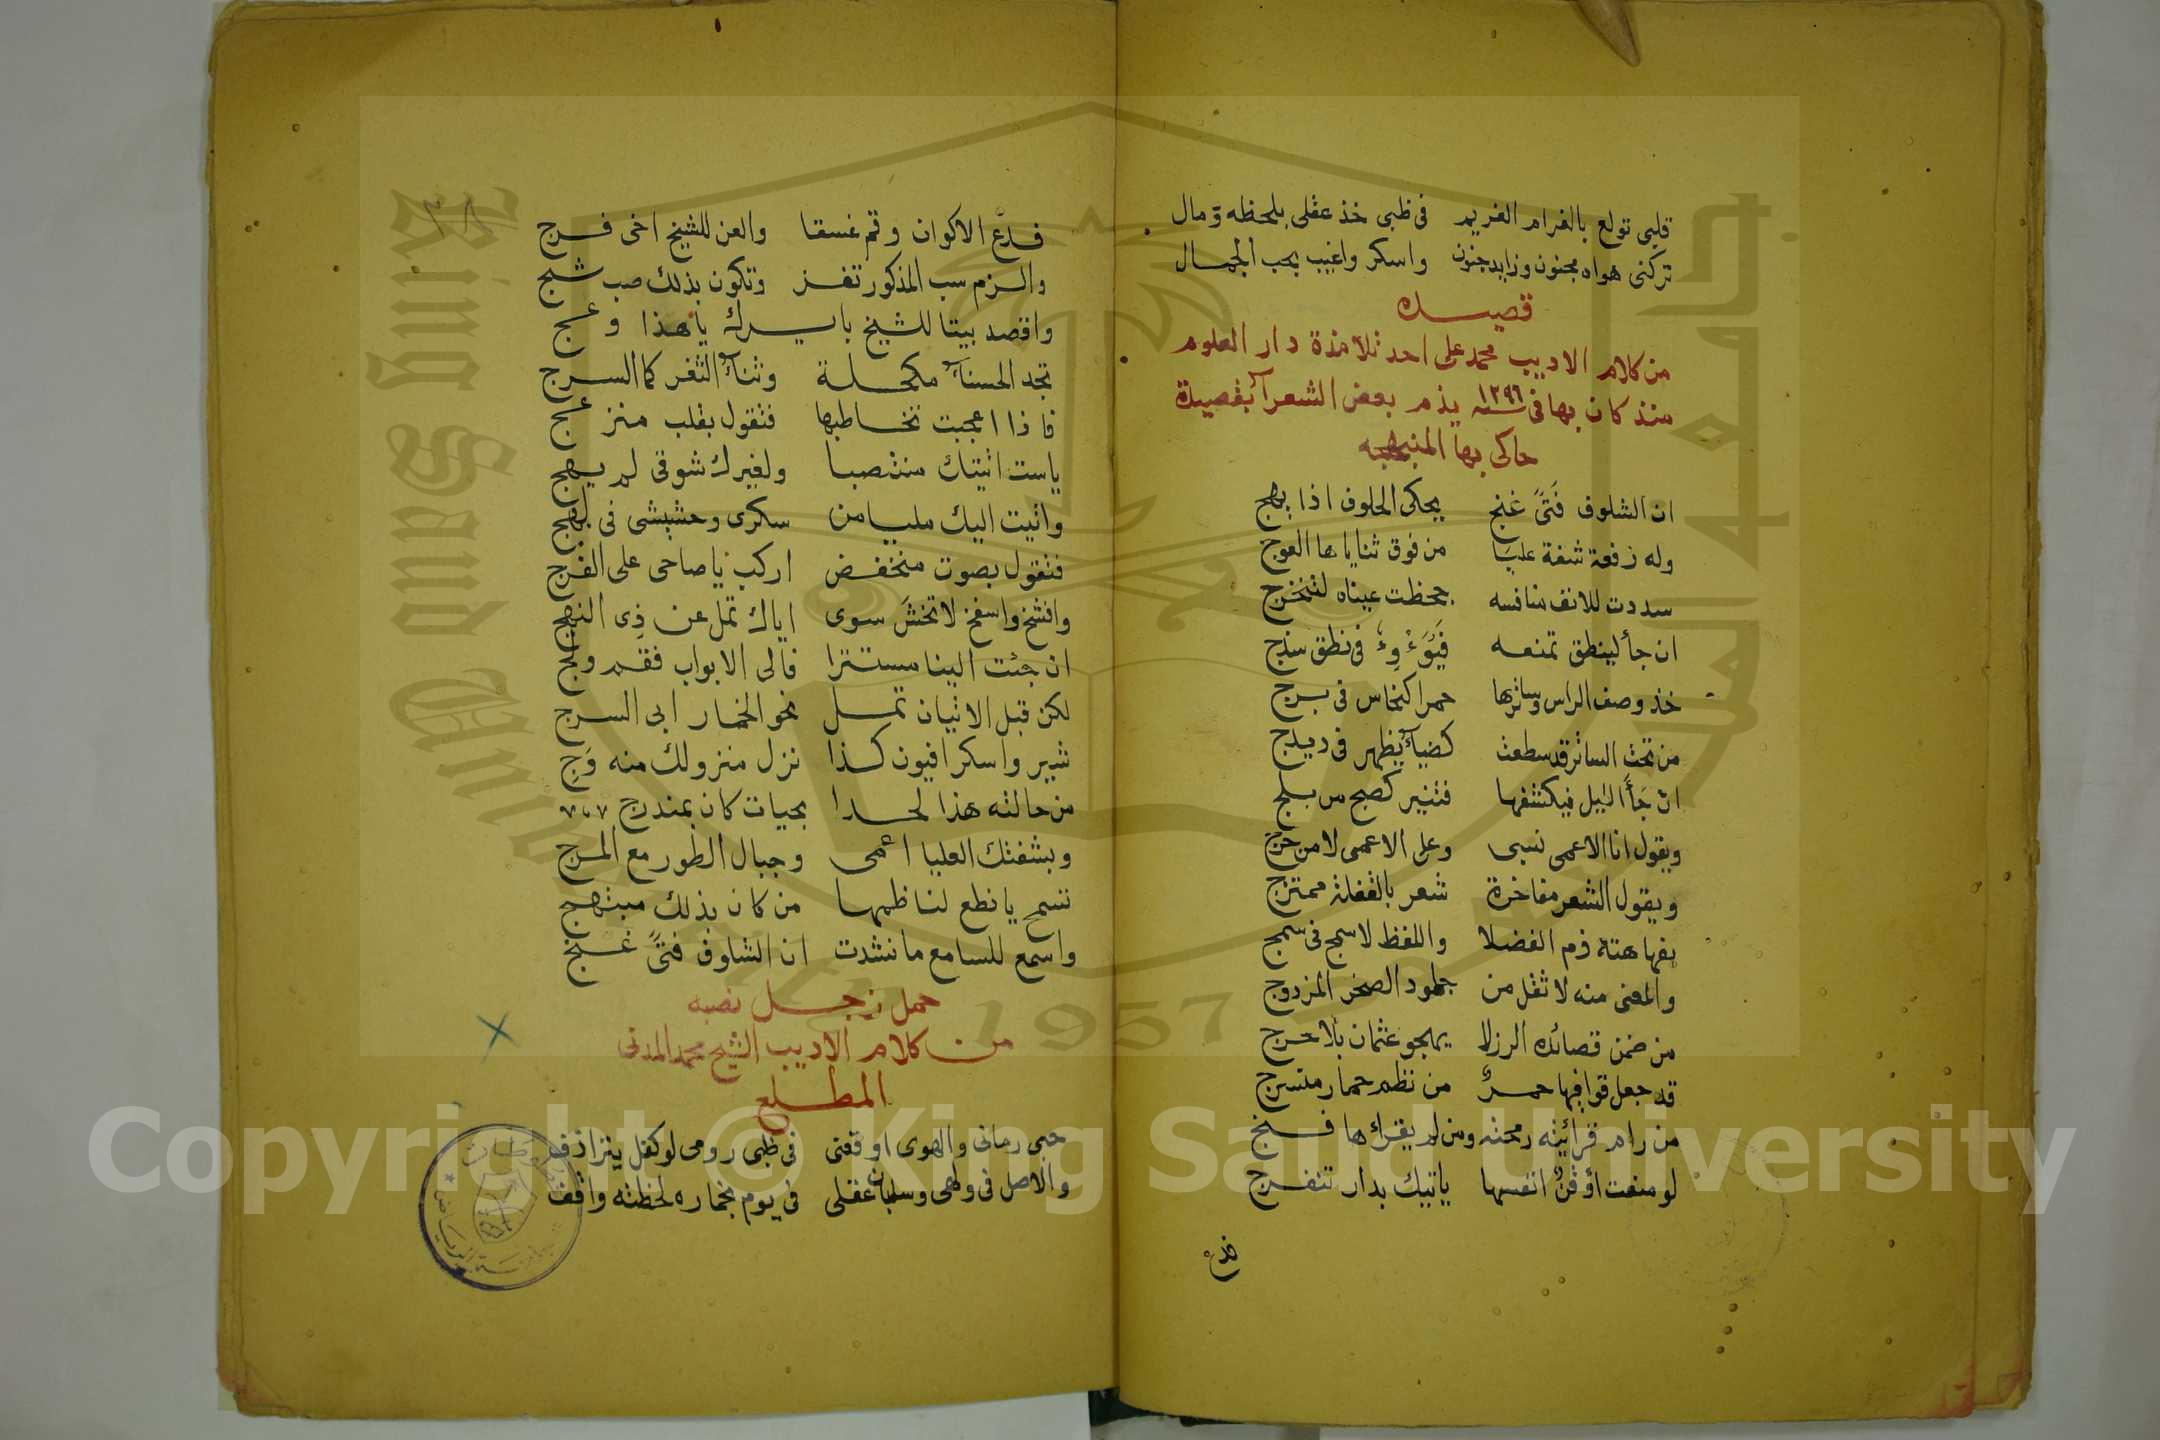 قلبي تولع بالغرام الغريم في ظبي خذ عقلي بلحظه ومال
تركني هواه مجنون وزايد جنون واسكر واغيب بحب الجمال
قصيده
من كلام الاديب محمد على احد تلامذة دار العلوم
منذ كان بها في سنة ١٢٩٦ يذم بعض الشعرآ بقصيدة
حاكى بها المنبهجه
ان الشلوف فتىً غنج يحكى الحلوف اذا يهج
وله زفعة شفة عليا من فوق ثناياها العوج
سددت للانف منافسه جحظت عيناه لتنخرج
ان جأ لينطق تمنعه في نطق سذج
خذ وصف الراس وساترها حمرا كنحاس في برج
من تحت الساتر قد سطعت كضيآ يظهر في ديدج
ان جأ الليل فيكشفها فتنير كصبح من بلج
ويقول انا الاعمى نسبى وعلى الاعمى لا من حرج
ويقول الشعر مفاخرة شعر بالغفلة ممتزج
بفهاهته ذم الفضلا واللفظ لاسمج في سمج
والمعنى منه لا ثقل من جلمود الصخر المزدوج
من ضمن قصائده الرزلا يهجو عثمان بلا حرج
قد جعل قوافيها حمرٌ من نظم حمار منسرج
من رام قرائته رمحته ومن لم يقرأها فنج
لو منعت انفسها ياتيك بدار تنفرج
فدع
فدع الاكوان وقم غسقا والعن للشيخ اخى فرج
والزم سب المذكور تفز وتكون بذلك صب شج
واقصد بيتا للشيخ بايسرك ياهذا وعج
تجد الحسنآ مكحلة وثنآ الثغر كما السرج
فاذا اعجبت تخاطبها فتقول بقلب منزعج
ياست اتيتك منتصبا ولغيرك شوقى لم يهج
واتيت اليك مليا من سكرى وحشيشى في
فتقول بصوت منخفض اركب ياصاحى على الفرج
وافشخ واسفخ لا تخش سوى اياك تمل عن ذى النهج
ان جئت الينا مستترا فالى الابواب فقم ولج
لكن قبل الاتيان تمل نحو الخمار ابى السرج
شير واسكر افيون كذا نزل منزولك منه وج
من حالته هذا لحدا بحيات كان بمندرج
وبشفتك العليا اعمى وجبال الطور مع المرج
تسمح يا نطع لناظمها من كان بذلك مبتهج
واسمع للسامع ما نشدت ان الشلوف فتىً غنج
حمل زجل نصبه
من كلام الاديب الشيخ محمد المدنى
المطلع
حبى رمانى والهوى اوقفنى في ظبى رومى لو كفل يترادف
والاصل في ولهى وسلبان عقلى في يوم بخماره لحظته واقف
King Saud University
جامعة الملك سعود
1957
Copyright © King Saud University